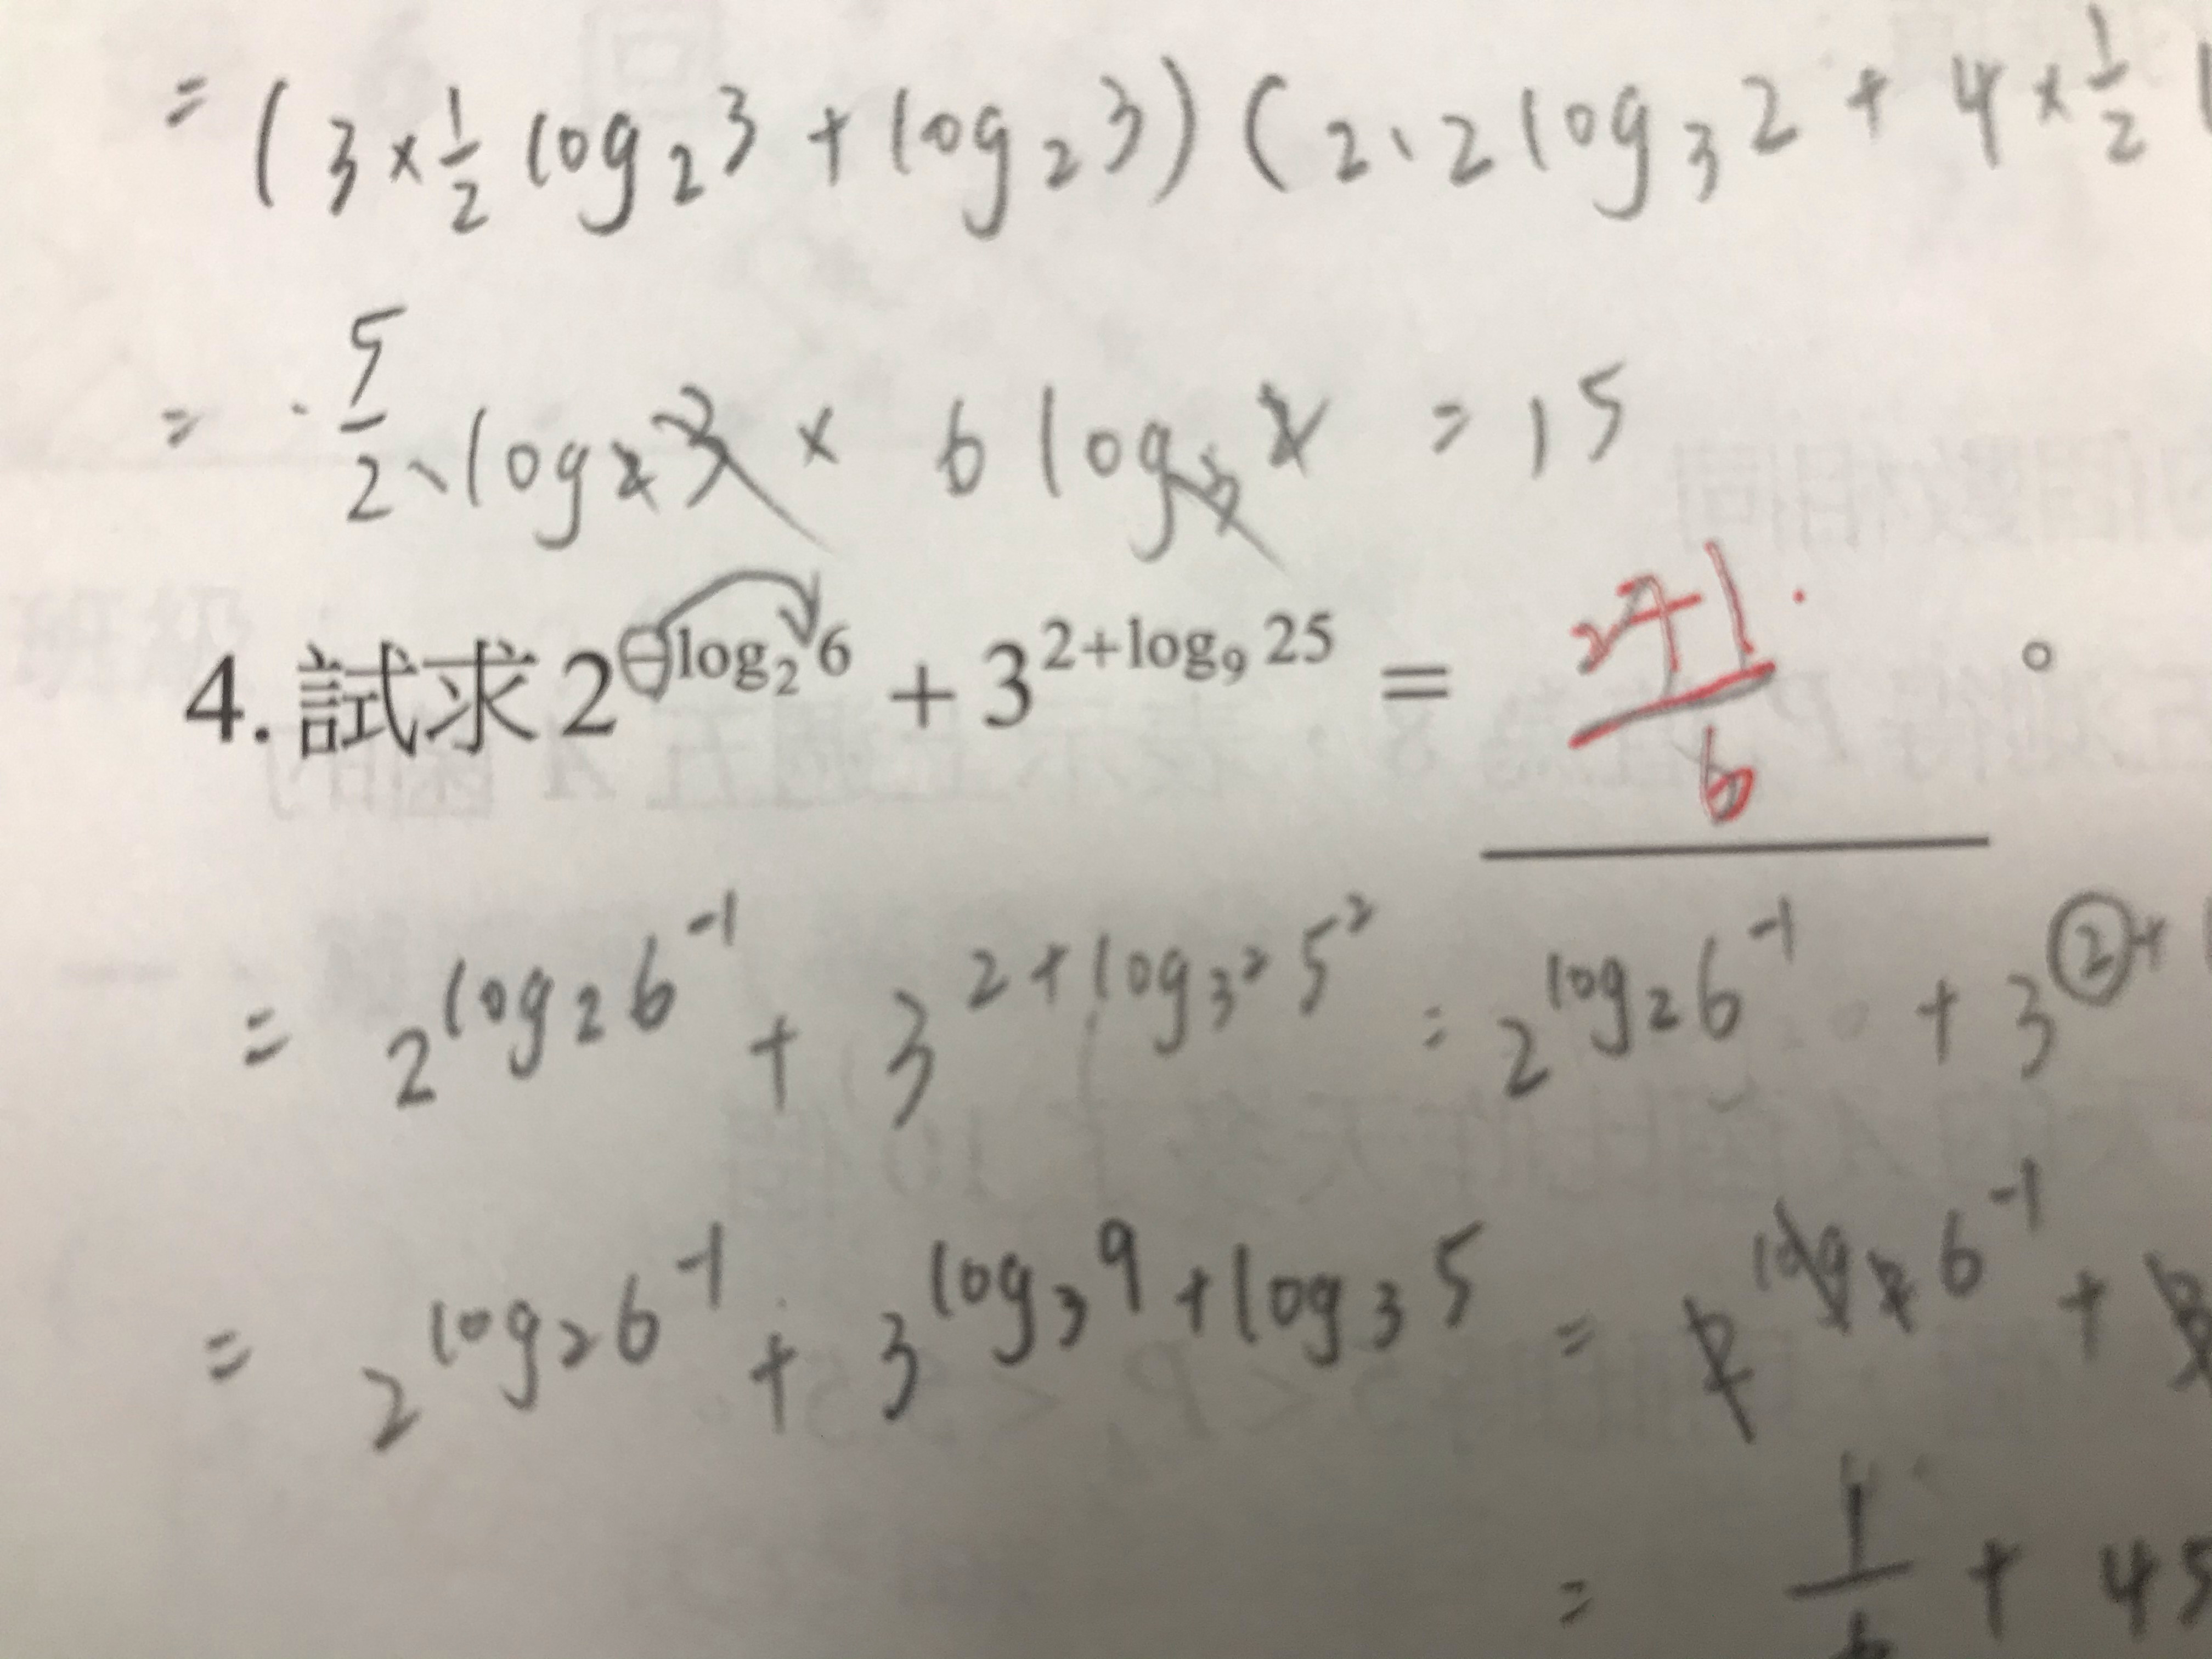 = (3×½ log₂3 + log₂3)(2·2log₃2 + 4×½
= 5/2·log₂3 × 6log₃2 = 15
4. 試求 2^(−log₂6) + 3^(2+log₉25) = 271/6 。
= 2^(log₂6⁻¹) + 3^(2+log₃²5²) = 2^(log₂6⁻¹) + 3^(2+
= 2^(log₂6⁻¹) + 3^(log₃9+log₃5) = 2^(log₂6⁻¹) +
= 1/6 + 45